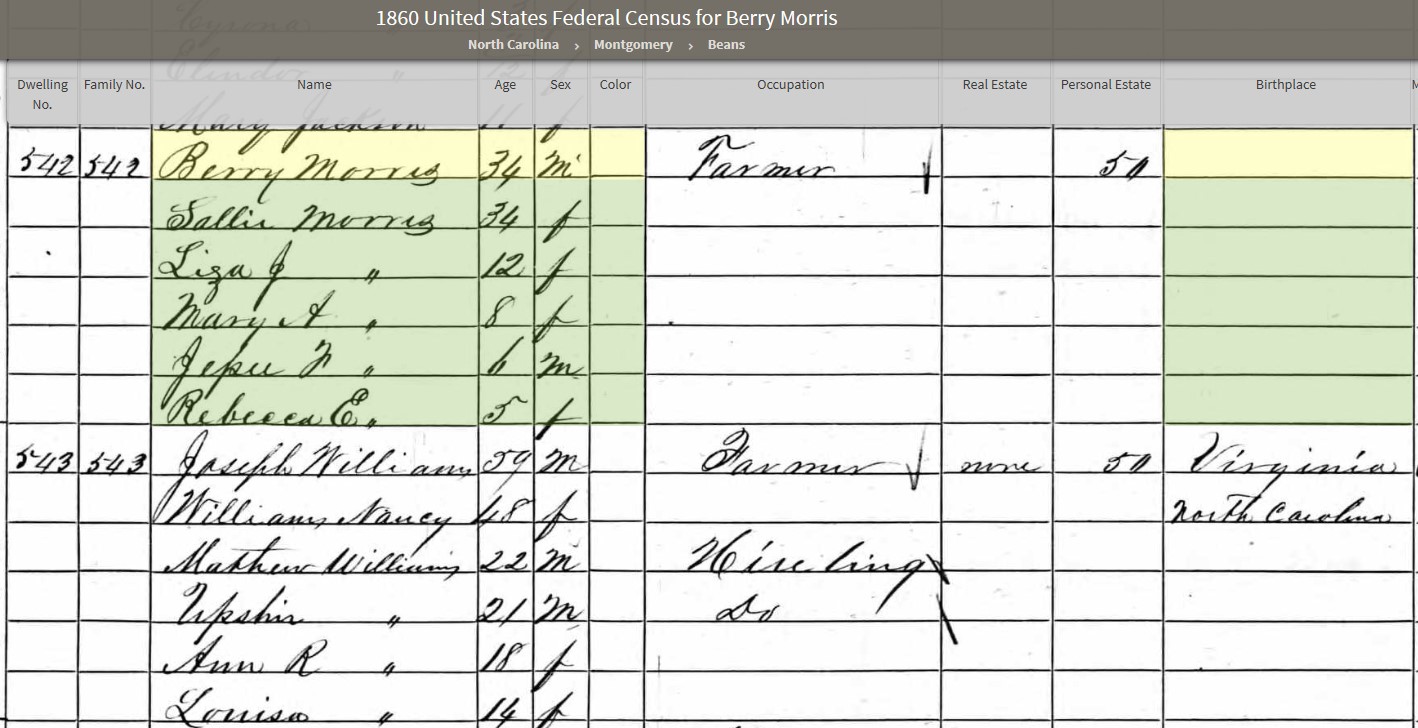 1860 United States Federal Census for Berry Morris
North Carolina › Montgomery › Beans
Dwelling No. Family No. Name Age Sex Color Occupation Real Estate Personal Estate Birthplace
Mary Jackson 11 f
542 542 Berry Morris 34 M Farmer 50
Sallie Morris 34 f
Liza J " 12 f
Mary A " 8 f
Jesse F " 6 M
Rebecca E " 5 f
543 543 Joseph Williams 59 M Farmer none 50 Virginia
Williams Nancy 48 f North Carolina
Matthew Williams 22 M Hireling
Upshir " 21 M Do
Ann R " 18 f
Louisa " 14 f